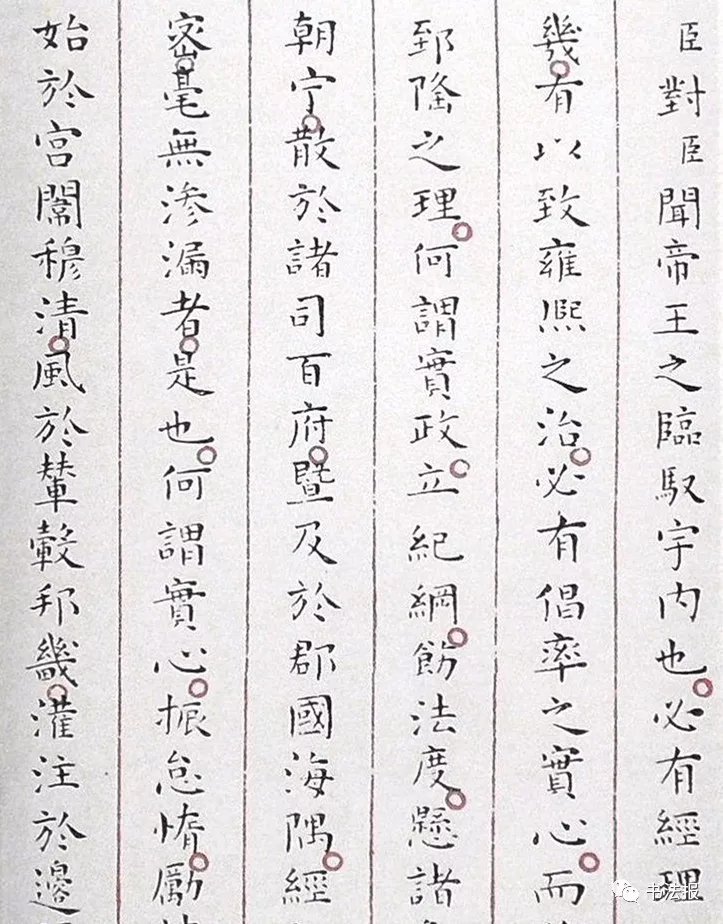 臣對臣聞帝王之臨馭宇內也必有經理
幾有以致雍熙之治必有倡率之實心而
郅隆之理何謂實政立紀綱飭法度懸諸
朝宁散於諸司百府暨及於郡國海隅經
密毫無滲漏者是也何謂實心振怠惰勵
始於宮闈穆清風於輦轂邦畿灌注於邊
书法报